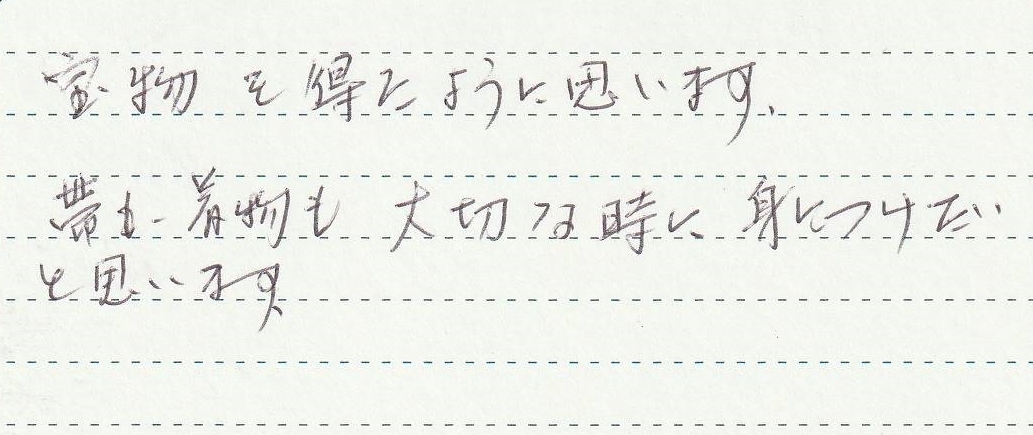 宝物を得たように思います。
帯も着物も大切な時に身につけたい
と思います。